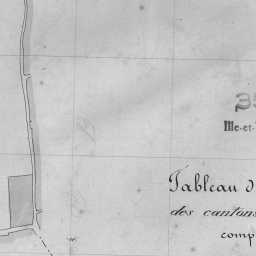 35
Ille-et-
Tableau d
des cantons
comp